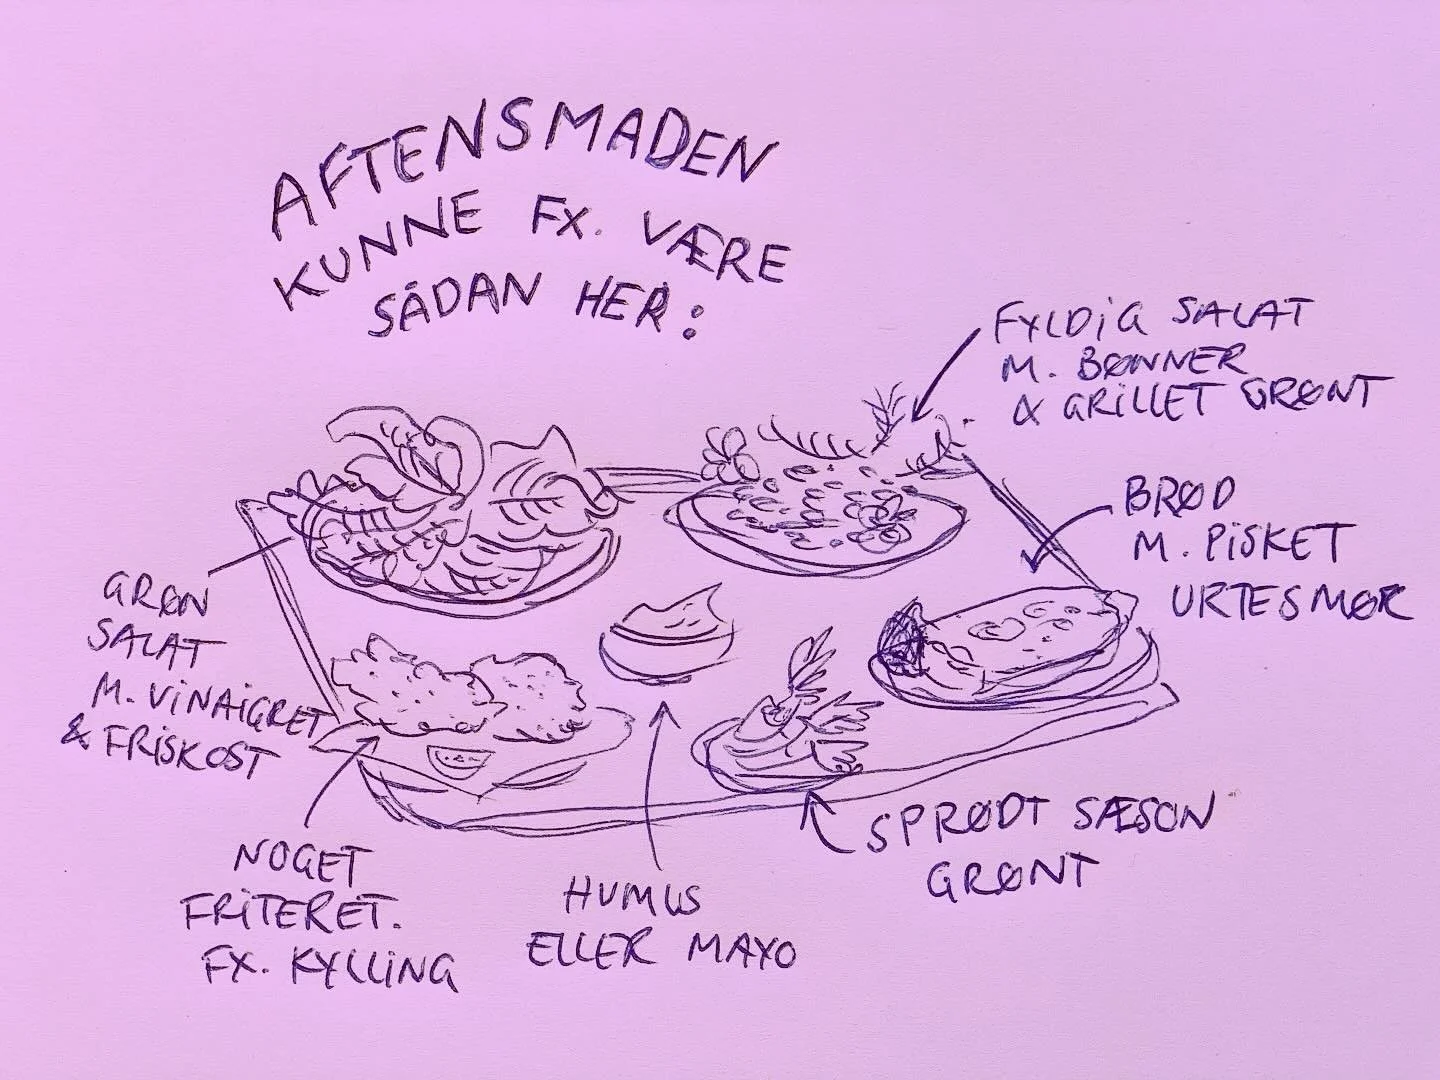 AFTENSMADEN
KUNNE FX. VÆRE
SÅDAN HER:
FYLDIG SALAT
M. BØNNER
& GRILLET GRØNT
BRØD
M. PISKET
URTESMØR
GRØN
SALAT
M. VINAIGRET
& FRISKOST
NOGET
FRITERET.
FX. KYLLING
HUMUS
ELLER MAYO
SPRØDT SÆSON
GRØNT